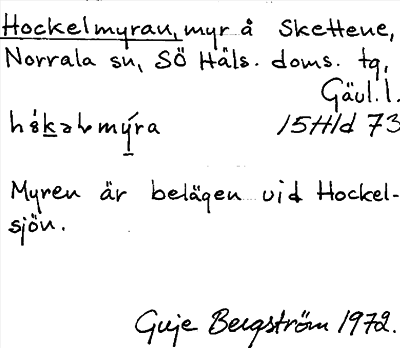 Hockelmyran, myr å Skettene,
Norrala sn, SÖ Häls. doms. tg,
Gävl. l.
15 Hld 73
Myren är belägen vid Hockel-
sjön.
Guje Bergström 1972.